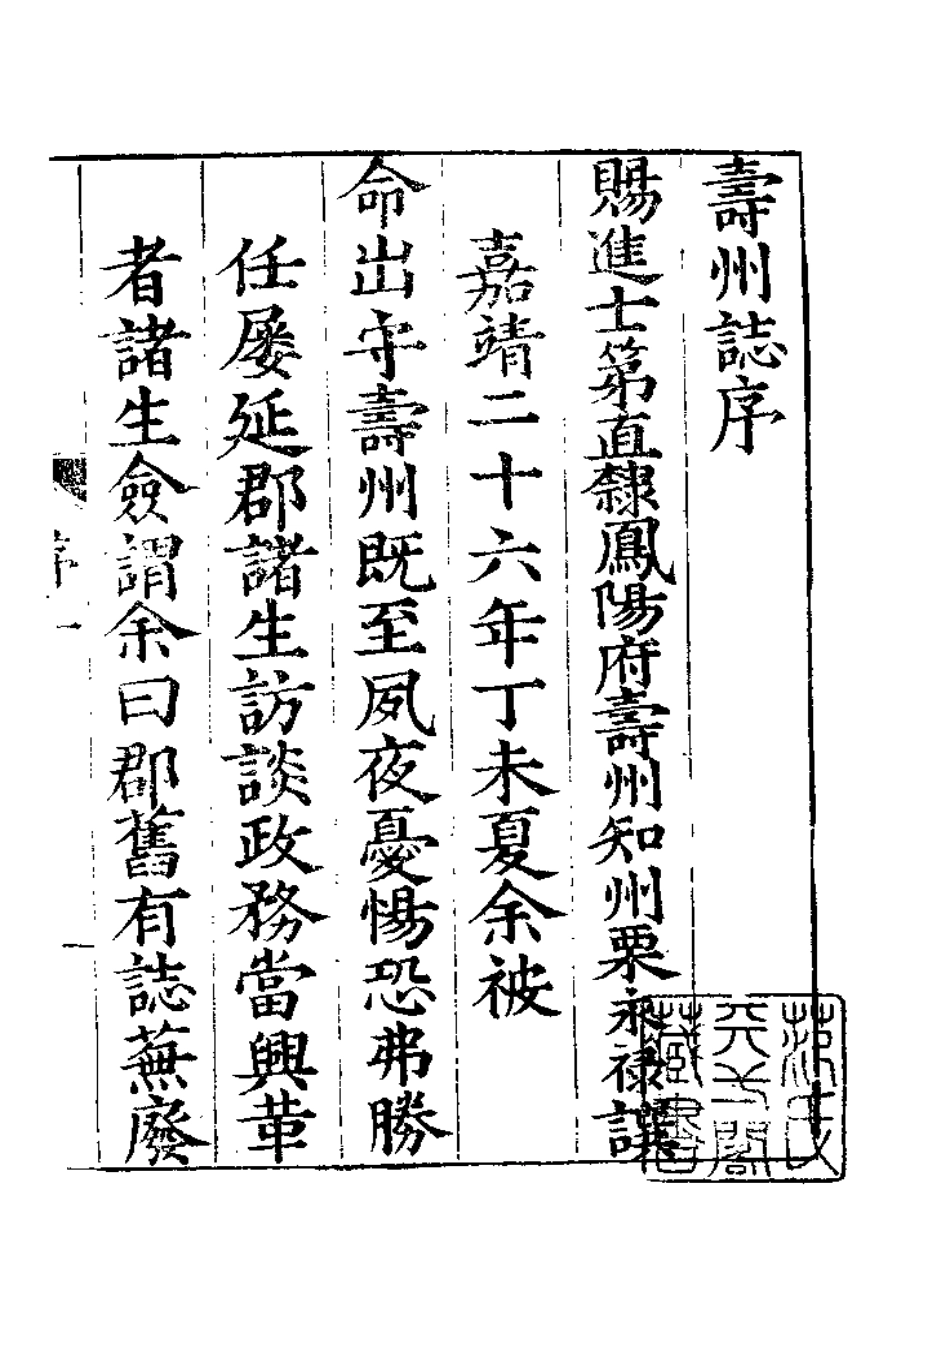 壽州誌序
賜進士第直隸鳳陽府壽州知州栗永祿譔
嘉靖二十六年丁未夏余被
命出守壽州既至夙夜憂惕恐弗勝
任屡延郡諸生訪談政務當興革
者諸生僉謂余曰郡舊有誌蕪廢
序
一
范氏
天一閣
藏書